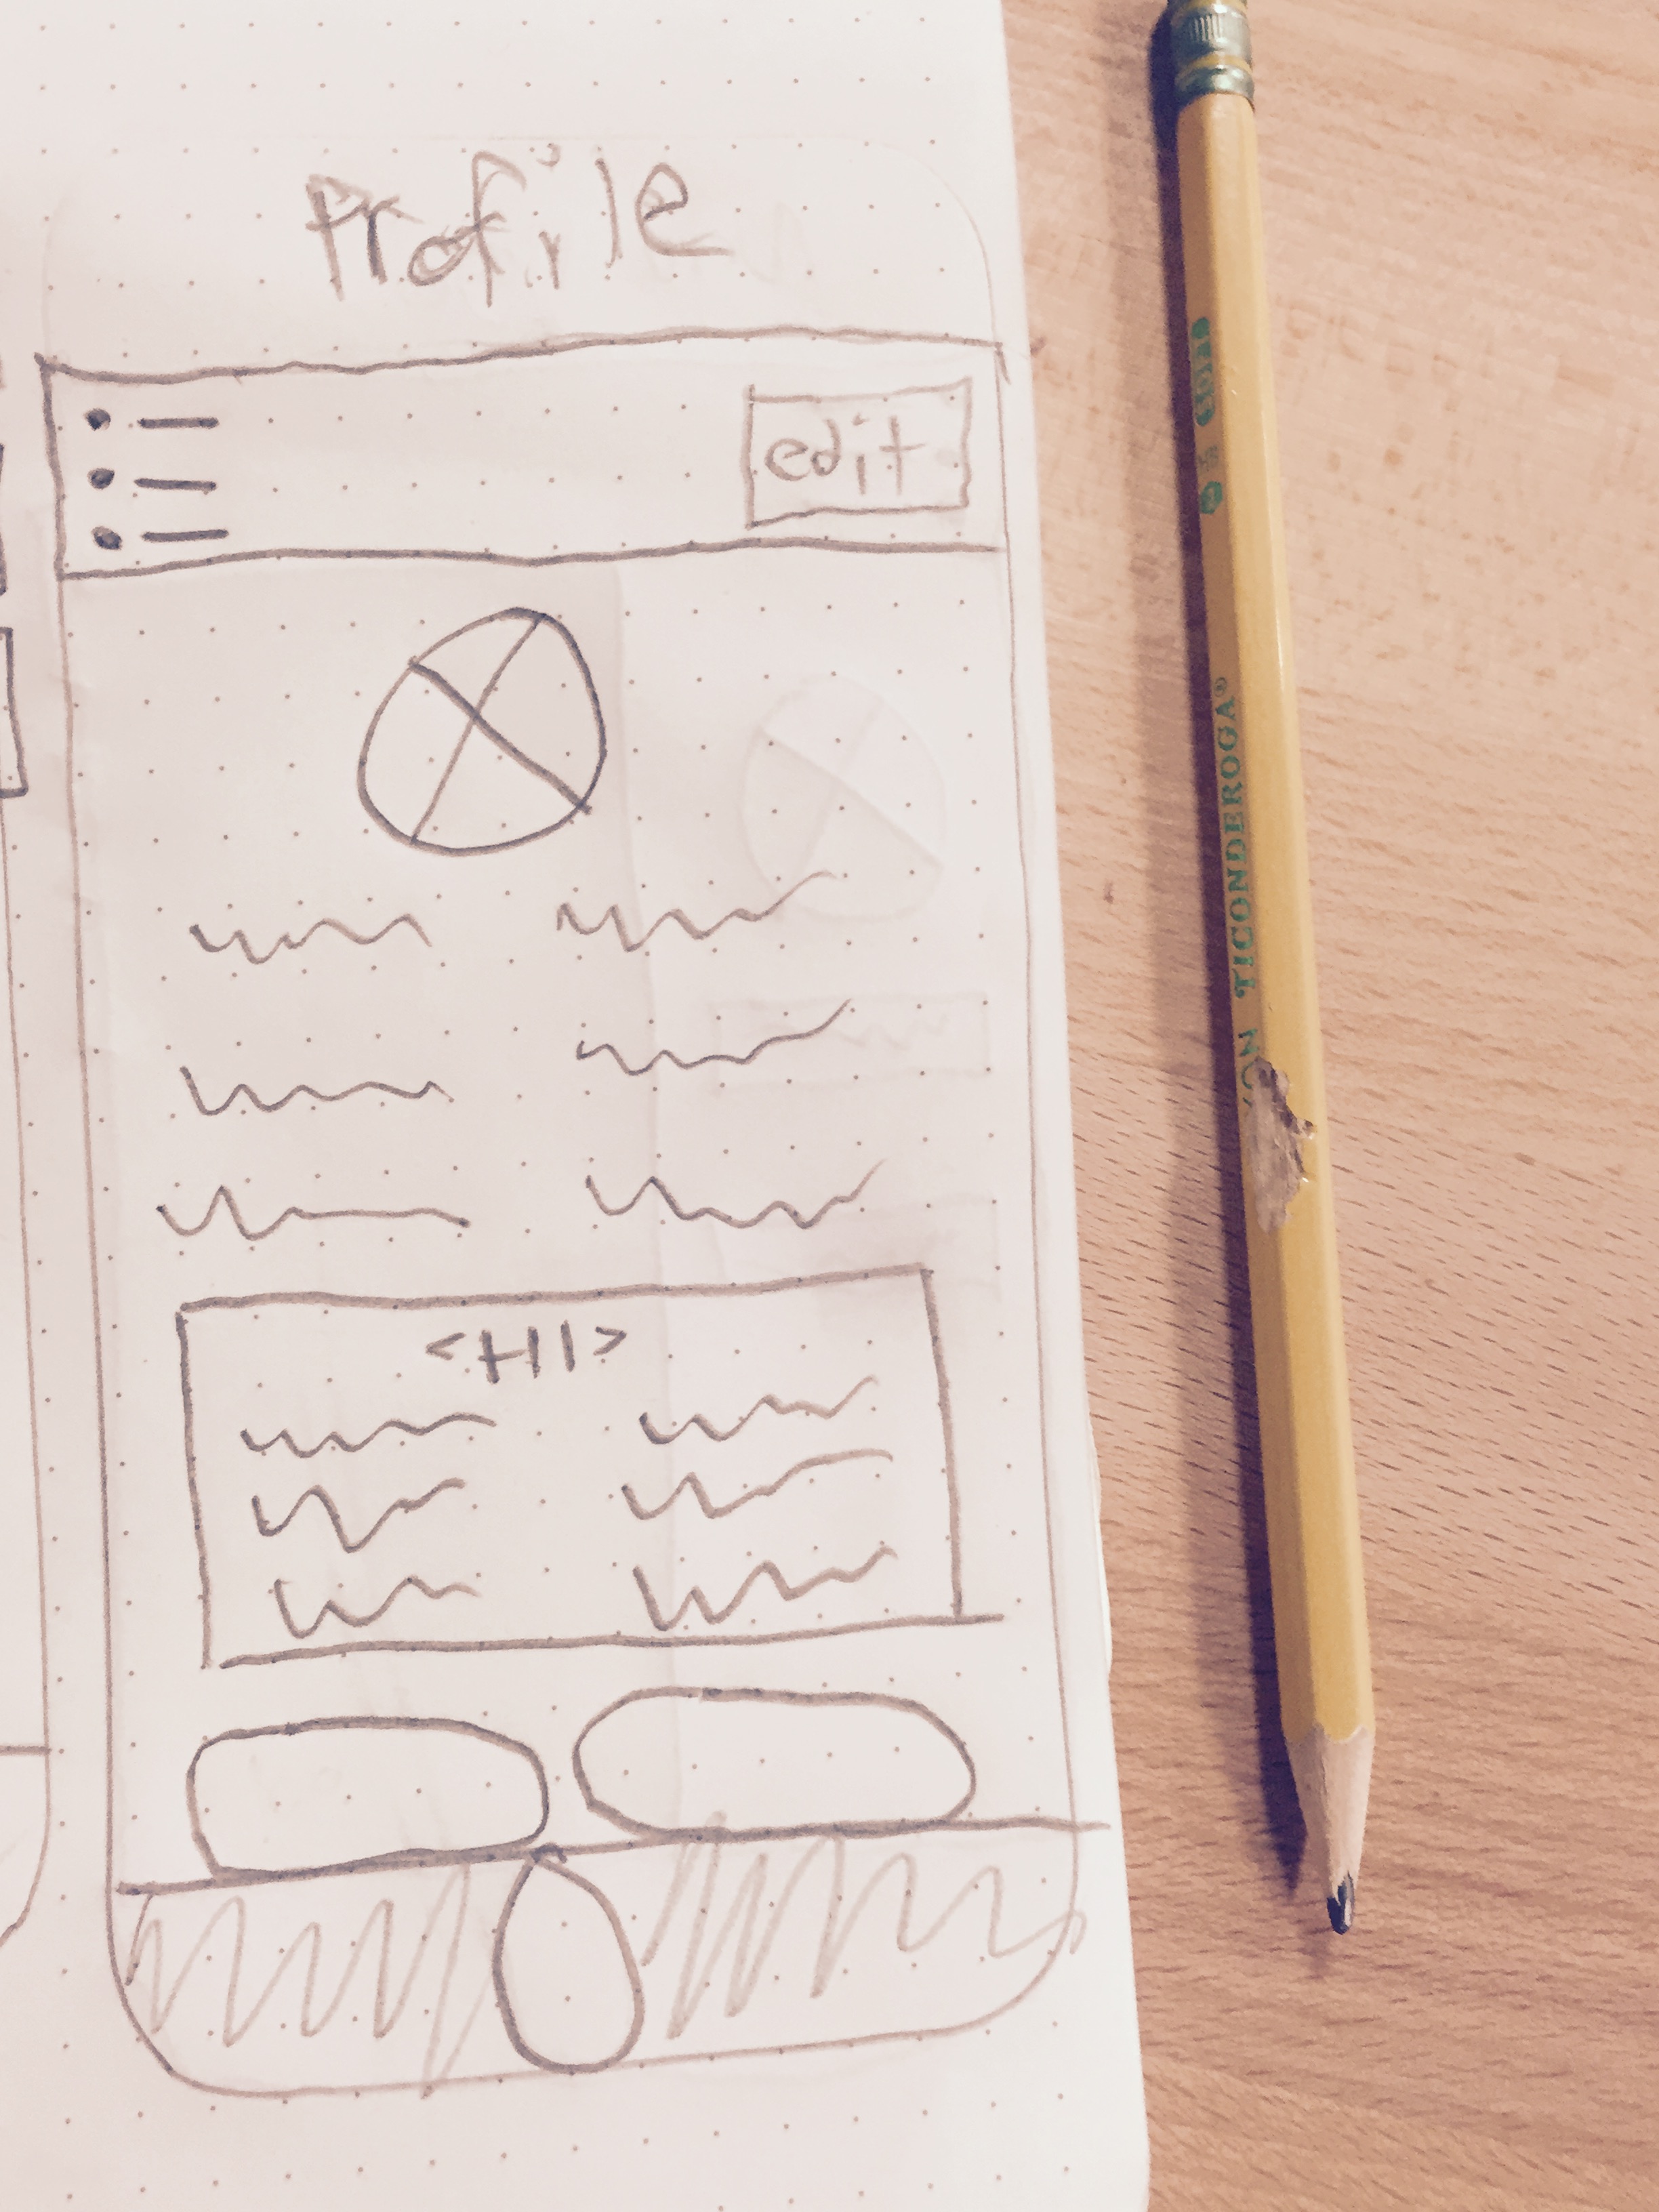 Profile
edit
<H1>
TICONDEROGA®